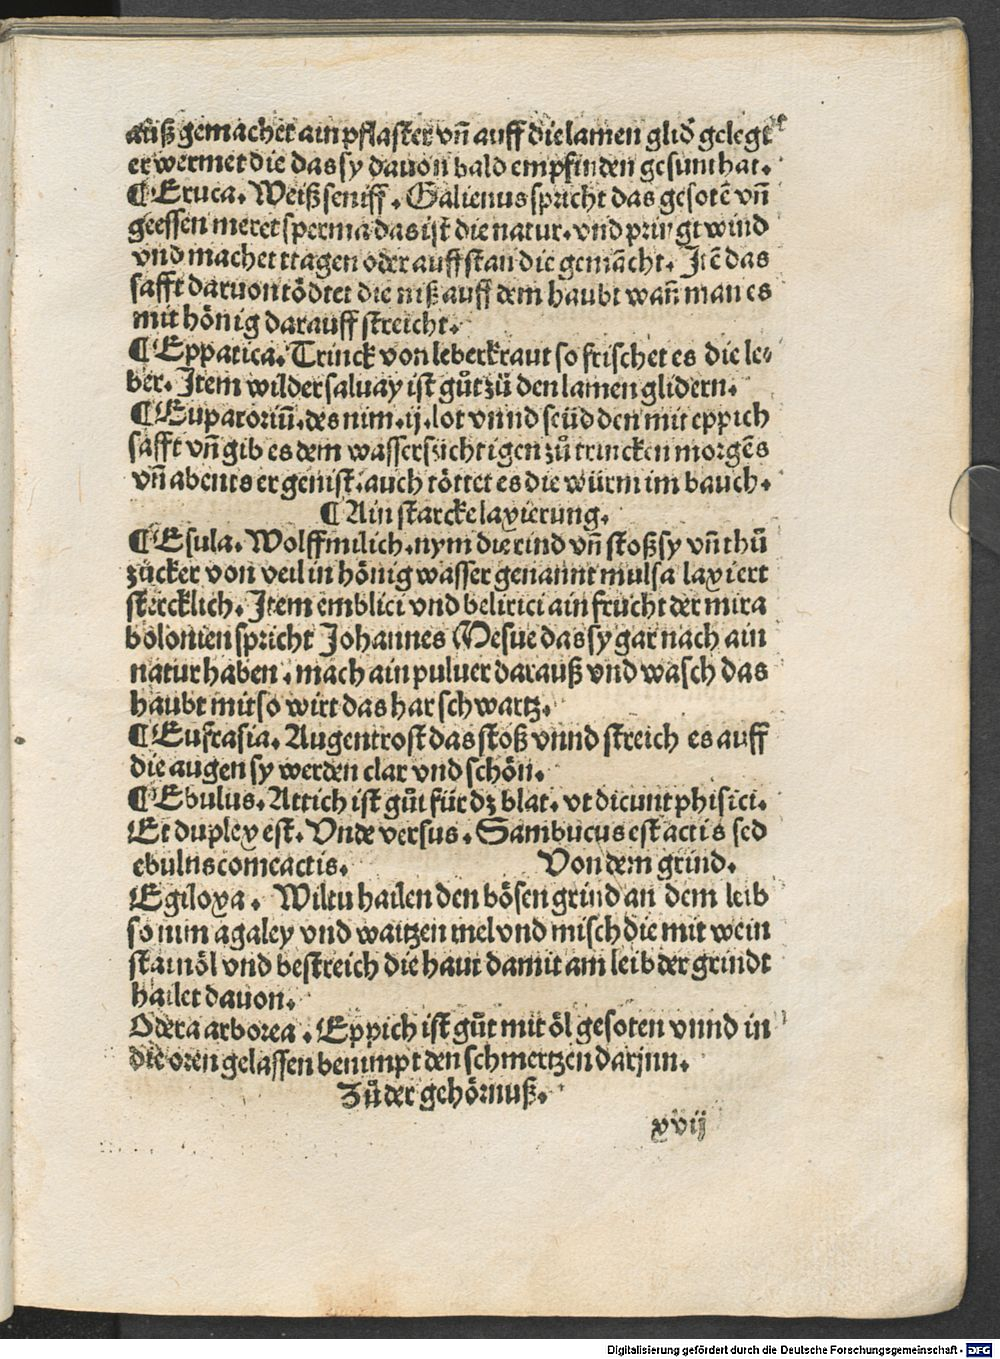 auß gemachet ain pflaster vn̄ auff die lamen glid̄ gelegt
er wermet die das sy dauon bald empfinden gesunthat.
¶ Eruca. Weiß seniff. Galienus spricht das gesotē vn̄
geessen meret sperma das ist die natur. vnd pringt wind
vnd machet tragen oder auff stan die gemācht. Itē das
safft daruon tödtet die niß auff dem haubt wan̄ man es
mit hönig darauff streicht.
¶ Eppatica. Trinck von leberkraut so frischet es die le⸗
ber. Item wilder saluay ist gůt zů den lamen glidern.
¶ Eupatoriū. des nim. ij. lot vnnd seüd den mit eppich
safft vn̄ gib es dem wassersüchtigen zů trincken morgēs
vn̄ abents er genist. auch töttet es die würm im bauch.
¶ Ain starcke laxierung.
¶ Esula. Wolffmilich. nym die rind vn̄ stoß sy vn̄ thů
zucker von veil in hönig wasser genannt mulsa laxiert
stercklich. Item emblici vnd belirici ain frucht der mira
bolonien spricht Johannes Mesue das sy gar nach ain
natur haben. mach ain puluer darauß vnd wasch das
haubt mit so wirt das har schwartz.
¶ Eufrasia. Augentrost das stoß vnnd streich es auff
die augen sy werden clar vnd schön.
¶ Ebulus. Attich ist gůt für dz blat. vt dicunt phisici.
Et duplex est. Vnde versus. Sambucus est actis sed
ebulus comeactis. Von dem grind.
Egiloxa. Wiltu hailen den bösen grind an dem leib
so nim agaley vnd waitzen mel vnd misch die mit wein
stainöl vnd bestreich die haut damit am leib der grindt
hailet dauon.
Odera arborea. Eppich ist gůt mit öl gesoten vnnd in
die oren gelassen benimpt den schmertzen darjnn.
Zů der gehörnuß.
xvij
Digitalisierung gefördert durch die Deutsche Forschungsgemeinschaft - DFG